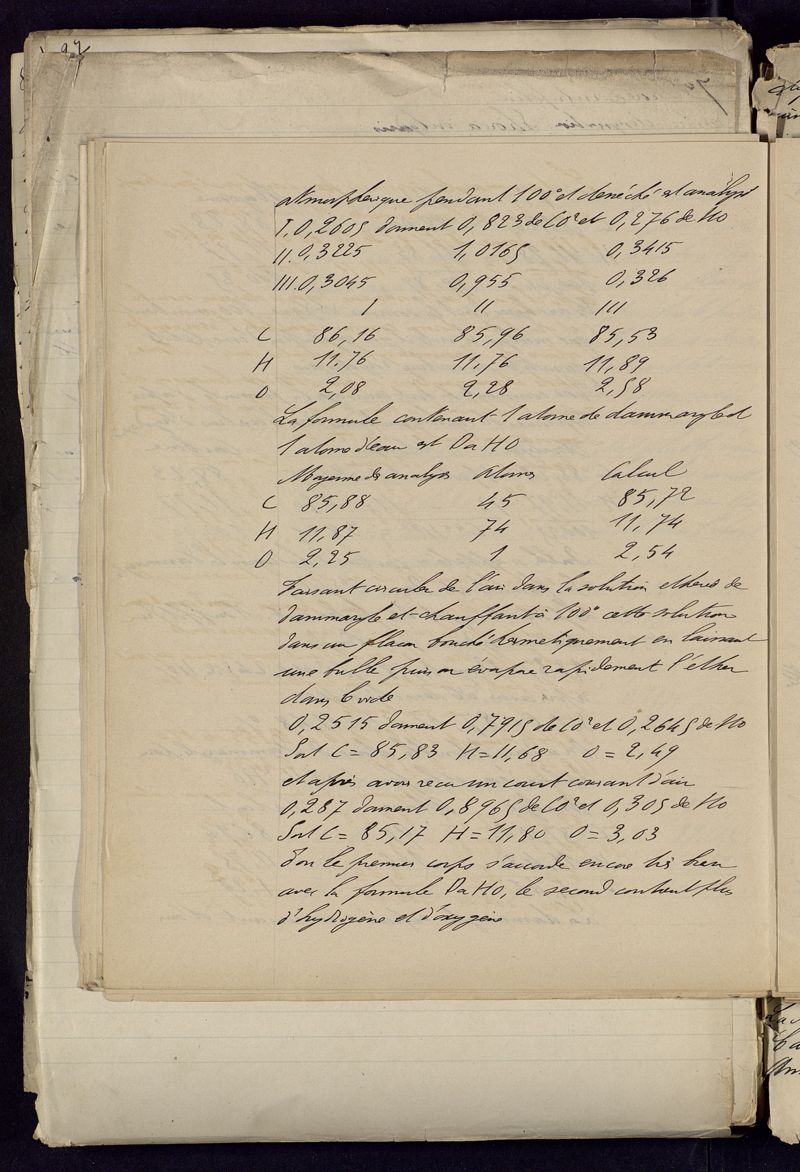 97
atmospherique pendant 100° et desséché et analysé
I. 0,2605 donnent 0,823 de Co² et 0,276 de Ho
II. 0,3225 1,0165 0,3415
III. 0,3045 0,955 0,326
I II III
C 86,16 85,96 85,53
H 11.76 11.76 11,89
O 2,08 2,28 2,58
La formule contenant 1 atome de dammaryle et
1 atome d'eau est Da Ho
Moyenne des analyses Atomes Calcul
C 85,88 45 85,72
H 11,87 74 11,74
O 2,25 1 2,54
Faisant circuler de l'air dans la solution etherée de
dammaryle et chauffant à 100° cette solution
dans un flacon bouché hermetiquement en laissant
une bulle puis on évapore rapidement l'ether
dans le vide
0,2515 donnent 0,7915 de Co² et 0,2645 de Ho
Soit C = 85,83 H = 11,68 O = 2,49
et après avoir recu un court courant d'air
0,287 donnent 0,8965 de Co² et 0,305 de Ho
Soit C = 85,17 H = 11,80 O = 3,03
d'on le premier corps s'accorde encore très bien
avec la formule Da Ho, le second contient plus
d'hydrogène et d'oxygène